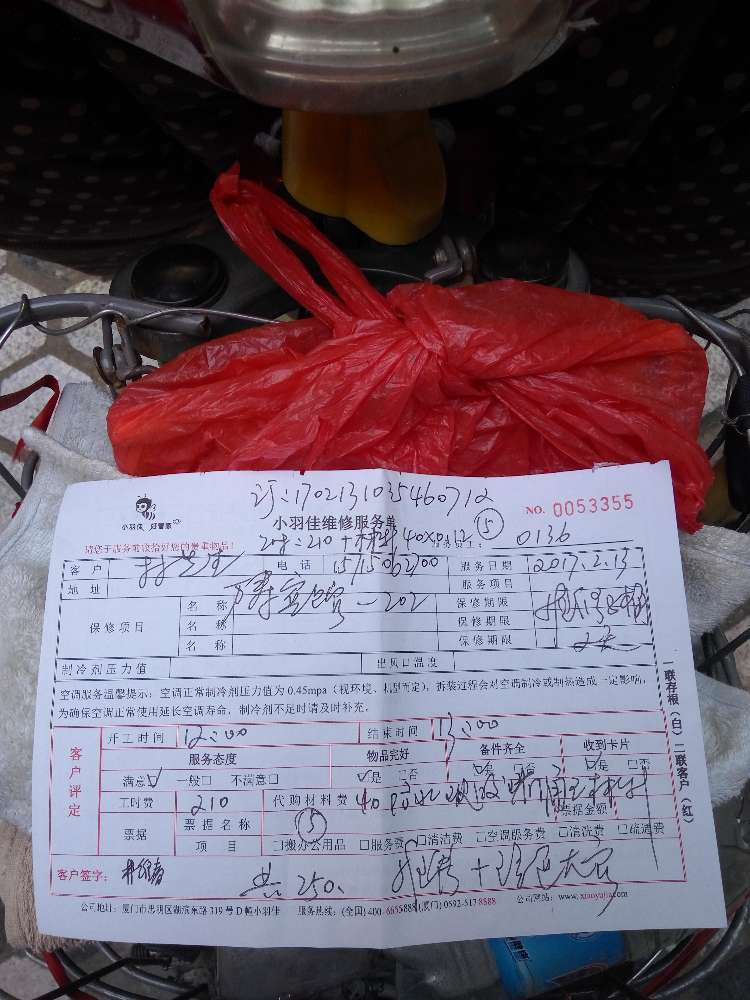 订:1702131035460712
小羽佳 好管家
小羽佳维修服务单
NO. 0053355
请您于服务前收拾好您的贵重物品!
210+材料40×0.12 ⑤
0136
客户 电话 服务日期 2017.2.13
地址 服务项目
保修项目 名称 保修期限
名称 保修期限
名称 保修期限
制冷剂压力值 出风口温度
空调服务温馨提示:空调正常制冷剂压力值为0.45mpa(视环境、机型而定),拆装过程会对空调制冷或制热造成一定影响,
为确保空调正常使用延长空调寿命,制冷剂不足时请及时补充。
一联存根(白)二联客户(红)
客户评定
开工时间 12:00 结束时间 13:00
服务态度 物品完好 备件齐全 收到卡片
满意☑ 一般□ 不满意□ ☑是 □否 ☑是 □否 ☑是 □否
工时费 210 代购材料费 40
票据 票据名称 票据金额
⑤
项目 □搬办公用品 □服务费 □清洁费 □空调服务费 □清洗费 □疏通费
客户签字: 共250.
公司地址:厦门市思明区湖滨东路319号D幢小羽佳 服务热线:(全国)400-6655888(厦门)0592-5178888 公司网站:www.xiaoyujia.com